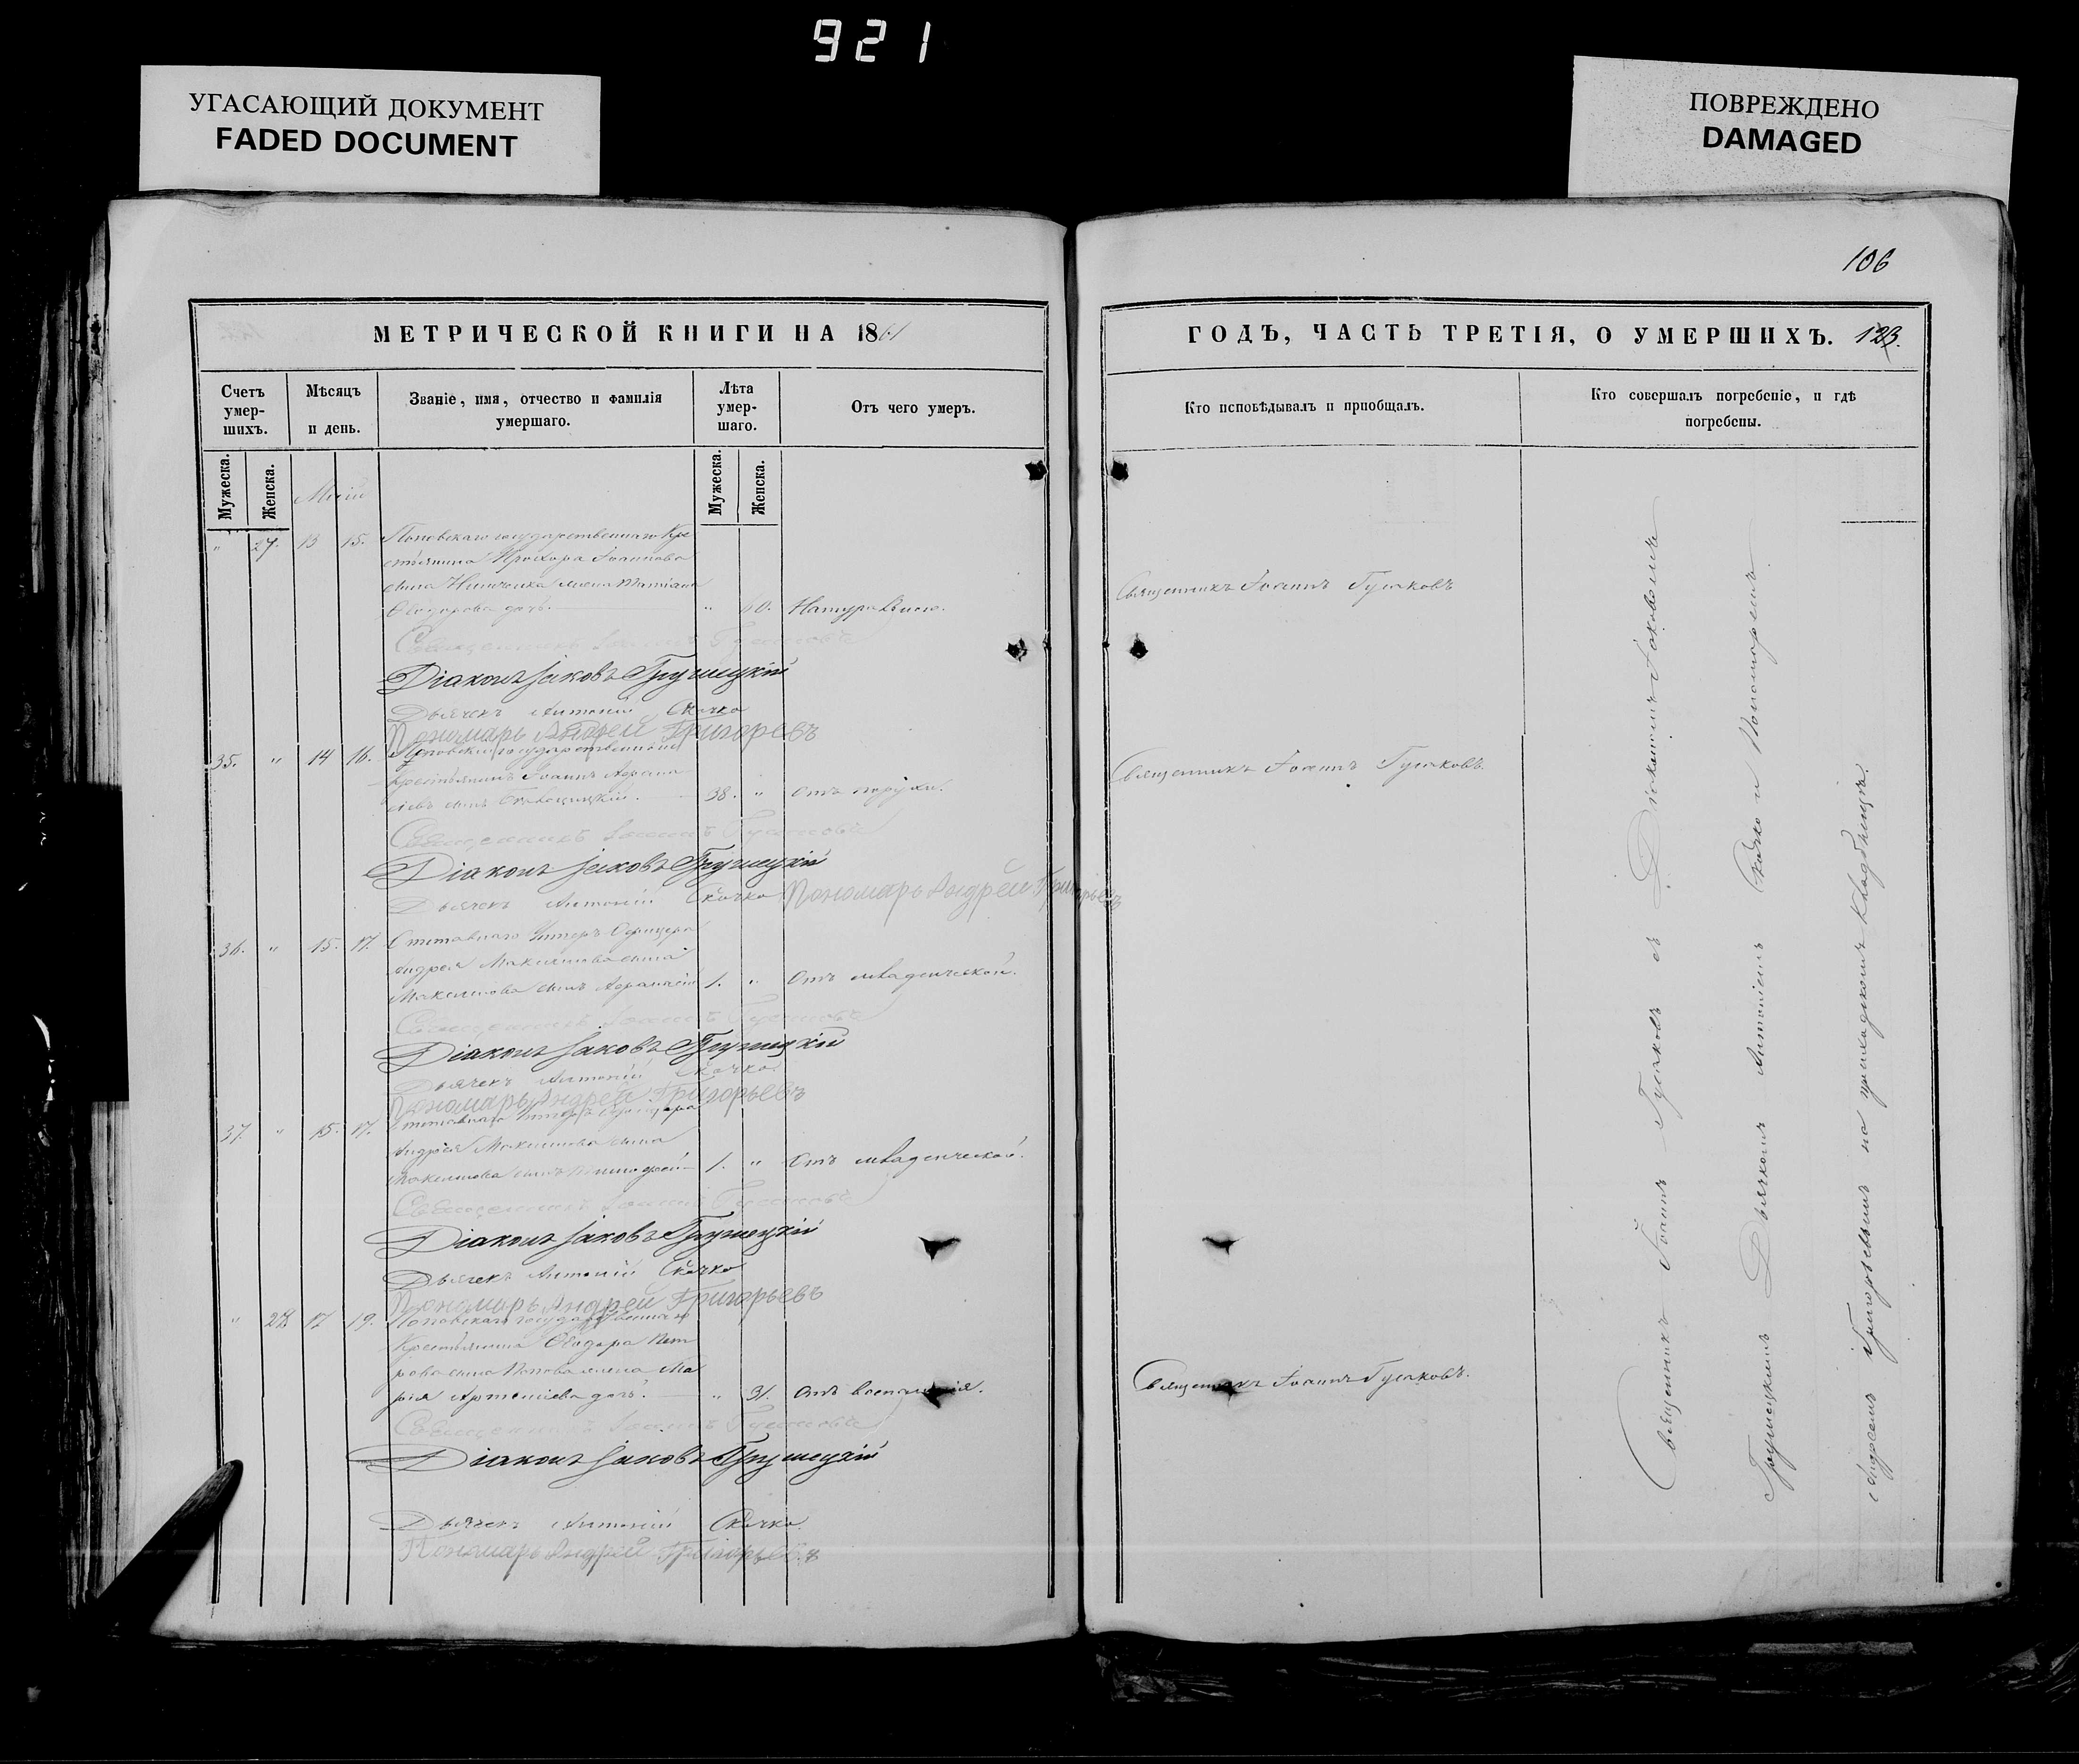 921
УГАСАЮЩИЙ ДОКУМЕНТ
FADED DOCUMENT
ПОВРЕЖДЕНО
DAMAGED
106
МЕТРИЧЕСКОЙ КНИГИ НА 1861
Счетъ умер-шихъ.
Мѣсяцъ и день.
Званіе, имя, отчество и фамилія умершаго.
Лѣта умер-шаго.
Отъ чего умеръ.
Мужеска.
Женска.
Мужеска.
Женска.
Май
" 27. 13 15. Поповскаго государственнаго Кре
стьянина Прохора Іоаннова
сына жена Татіана
Ѳеодорова дочь. " 60. Натурально.
Священникъ Іоаннъ Гусаковъ
Діаконъ Іаковъ Грушецкій
Дьячекъ Антоній Скочко
Пономарь Андрей Григорьевъ
35. " 14 16. Поповскій государственный
крестьянинъ Іоаннъ Аѳана
сіевъ сынъ 38. " Отъ
Священникъ Іоаннъ Гусаковъ
Діаконъ Іаковъ Грушецкій
Дьячекъ Антоній Скочко Пономарь Андрей Григорьевъ
36. " 15. 17. Отставнаго Унтеръ Офицера
Андрея Максимова сына
Максимова сынъ Аѳанасій 1. " Отъ младенческой.
Священникъ Іоаннъ Гусаковъ
Діаконъ Іаковъ Грушецкій
Дьячекъ Антоній Скочко
Пономарь Андрей Григорьевъ
37. " 15. 17. Отставнаго Унтеръ Офицера
Андрея Максимова сына
Максимова сынъ Тимофей 1. " Отъ младенческой.
Священникъ Іоаннъ Гусаковъ
Діаконъ Іаковъ Грушецкій
Дьячекъ Антоній Скочко
Пономарь Андрей Григорьевъ
" 28 17 19. Поповскаго государственнаго
Крестьянина Ѳеодора Пет
рова сына Попова жена Ма
рія Артеміева дочь. " 31. Отъ воспаленія.
Священникъ Іоаннъ Гусаковъ
Діаконъ Іаковъ Грушецкій
Дьячекъ Антоній Скочко.
Пономарь Андрей Григорьевъ
ГОДЪ, ЧАСТЬ ТРЕТІЯ, О УМЕРШИХЪ. 123.
Кто исповѣдывалъ и пріобщалъ.
Кто совершалъ погребеніе, и гдѣ погребены.
Священникъ Іоаннъ Гусаковъ
Священникъ Іоаннъ Гусаковъ.
Священникъ Іоаннъ Гусаковъ.
Священникъ Іоаннъ Гусаковъ съ Діакономъ Іаковомъ
Грушецкимъ Дьячкомъ Антоніемъ Скочко и Пономаремъ
Андреемъ Григорьевымъ на приходскомъ кладбищѣ.